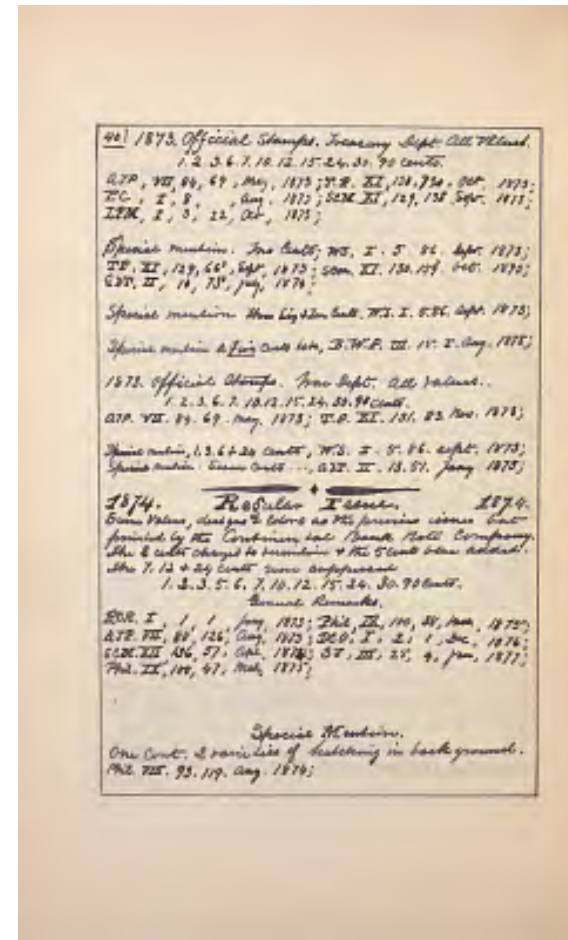 40) 1873. Official Stamps. Treasury Dept. All Values.
1. 2. 3. 6. 7. 10. 12. 15. 24. 30. 90 cents.
AJP, VII, 84, 69, May, 1873; T.P. XI, 1873;
I, 8, , Aug. 1873; SCM. XI, 129, 138 Sept. 1873;
I, 3, 22, Oct, 1873;
Special mention. Two Cents; WS, I. 5. 86. Sept. 1873;
T.P. XI, 129, Sept, 1873; SCM. XI. 130.
II, 1876;
Special mention W.S. I. 5.86. Sept. 1873;
Special mention Cents B.W.P. III. Aug. 1875;
1873. Official Stamps. War Dept. All Values..
1. 2. 3. 6. 7. 10. 12. 15. 24. 30. 90 Cents.
AJP. VII. 84. 69. May. 1873; T.P. XI. 131. 83. Nov. 1873;
Special mention, 1, 3, 6 & 20 Cents, W.S. I. 5. 86. Sept. 1873;
Special mention Seven Cents II. 13. 51. 1875;
1874. Regular Issue. 1874.
Same Values, designs & Colors as the previous issues but
printed by the Continental Bank Note Company.
The 2 cents changed to vermilion & the 5 cents blue added.
The 7. 12 & 24 cents were suppressed
1. 2. 3. 5. 6. 7. 10. 12. 15. 24. 30. 90 Cents.
General Remarks.
I, 1, 1, 1873; Phil. IX, 100, 1875;
AJP. VII, 88, 126, Aug, 1873; I, 2, 1, Dec, 1876;
SCM. XII 136, 57, Apl, 1874; III, 25, 9, Jan, 1877;
Phil. IX, 100, 47, 1875;
Special Mention.
One Cent. 2 varieties of hatching in back ground.
Phil. VIII. 93. 119. Aug. 1874;